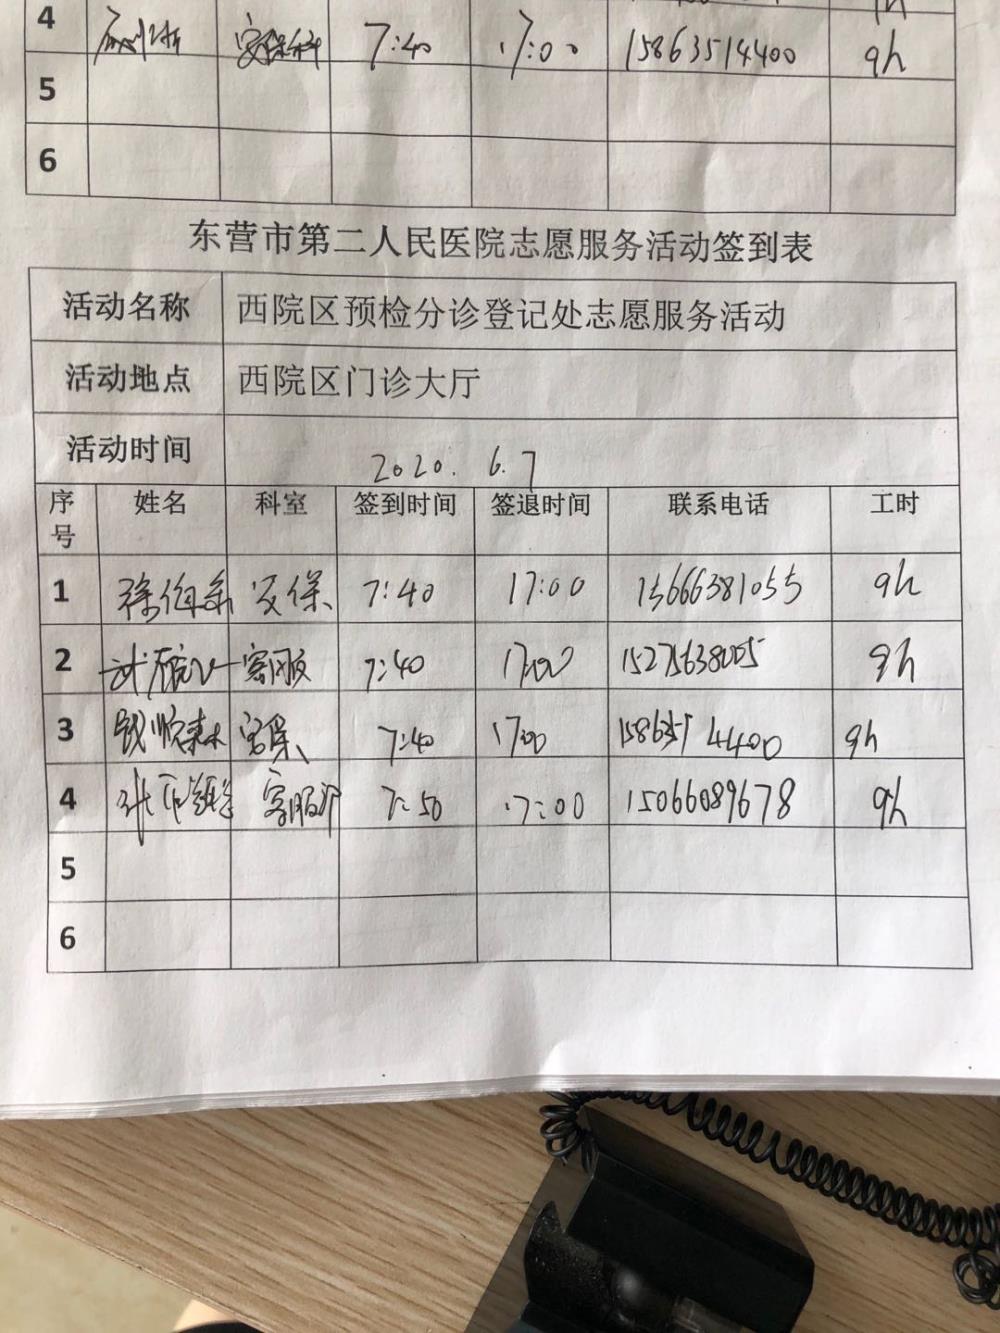 4 7:40 17:00 15863514400 9h
5
6
东营市第二人民医院志愿服务活动签到表
活动名称 西院区预检分诊登记处志愿服务活动
活动地点 西院区门诊大厅
活动时间 2020.6.7
序号 姓名 科室 签到时间 签退时间 联系电话 工时
1 安保 7:40 17:00 15666381055 9h
2 客服 7:40 17:00 9h
3 安保 7:40 17:00 9h
4 客服 7:50 17:00 15066089678 9h
5
6